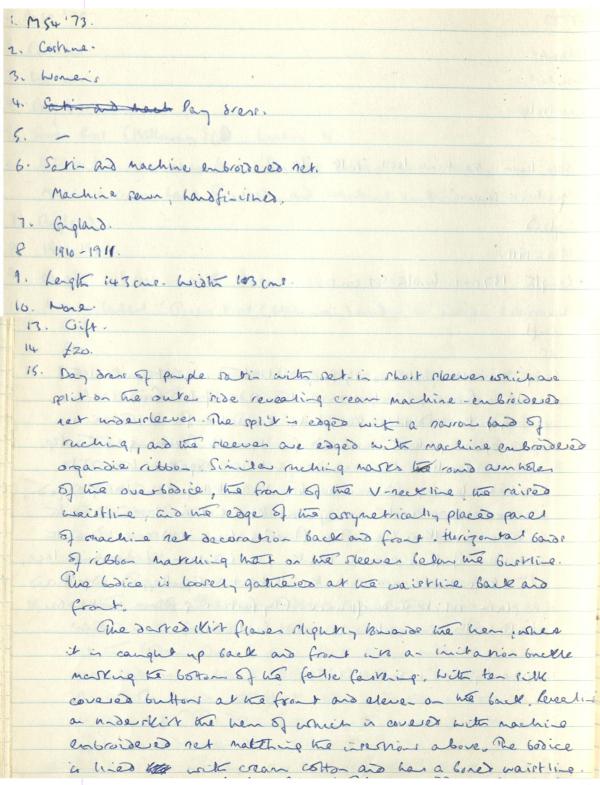 1. M54'73.
2. Costume.
3. Women's
4. Satin and Day dress.
5. –
6. Satin and machine embroidered net.
Machine sewn, handfinished.
7. England.
8 1910-1911.
9. Length 143 cms. Width 103 cms.
10. None.
13. Gift.
14 £20.
15. Day dress of purple satin with set-in short sleeves which are
split on the outer side revealing cream machine-embroidered
net undersleeves. The split is edged with a narrow band of
ruching, and the sleeves are edged with machine embroidered
organdie ribbon. Similar ruching marks the round armholes
of the overbodice, the front of the V-neckline, the raised
waistline, and the edge of the assymetrically placed panel
of machine net decoration back and front. Horizontal bands
of ribbon matching that on the sleeves below the bustline.
The bodice is loosely gathered at the waistline back and
front.
The darted skirt flares slightly towards the hem, where
it is caught up back and front into an imitation buckle
marking the bottom of the false fastening. With ten silk
covered buttons at the front and eleven on the back. Revealing
an underskirt the hem of which is covered with machine
embroidered net matching the insertions above. The bodice
is lined with cream cotton and has a boned waistline.